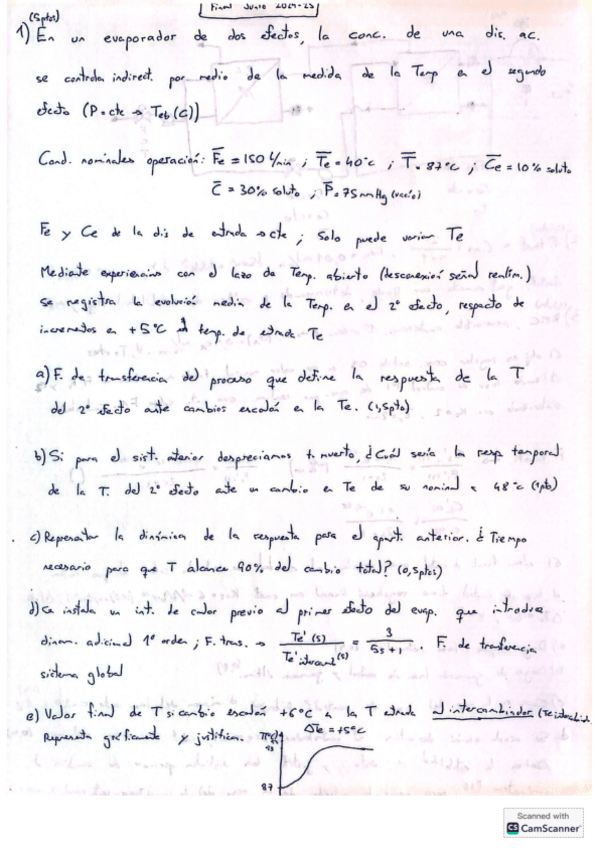 Final Junio 2024-25
(5ptos)
1) En un evaporador de dos efectos, la conc. de una dis. ac.
se controla indirect. por medio de la medida de la Temp en el segundo
efecto (P=cte → Teb(C))
Cond. nominales operación: F̅e = 150 l/min ; T̅e = 40°c ; T̅ = 87°c ; C̅e = 10% soluto
C̅ = 30% soluto ; P̅ = 75 mmHg (vacío)
Fe y Ce de la dis de entrada → cte ; Solo puede variar Te
Mediante experiencias con el lazo de Temp. abierto (desconexión señal realim.)
se registra la evolución media de la Temp. en el 2º efecto, respecto de
incrementos en +5°C temp. de entrada Te
a) F. de transferencia del proceso que define la respuesta de la T
del 2º efecto ante cambios escalón en la Te. (1,5pto)
b) Si para el sist. anterior despreciamos t. muerto, ¿Cuál sería la resp temporal
de la T. del 2º efecto ante un cambio en Te de su nominal a 48°c (1pto)
c) Representar la dinámica de la respuesta para el apart. anterior. ¿Tiempo
necesario para que T alcance 90% del cambio total? (0,5ptos)
d) Se instala un int. de calor previo al primer efecto del evap. que introduce
dinam. adicional 1º orden ; F. tras. → Te'(s) / Te'intercamb(s) = 3 / 5s+1 . F. de transferencia
sistema global
e) Valor final de T si cambio escalón +6°C a la T entrada al intercambiador
Representa gráficamente y justifica.
ΔTe = +5°C
87